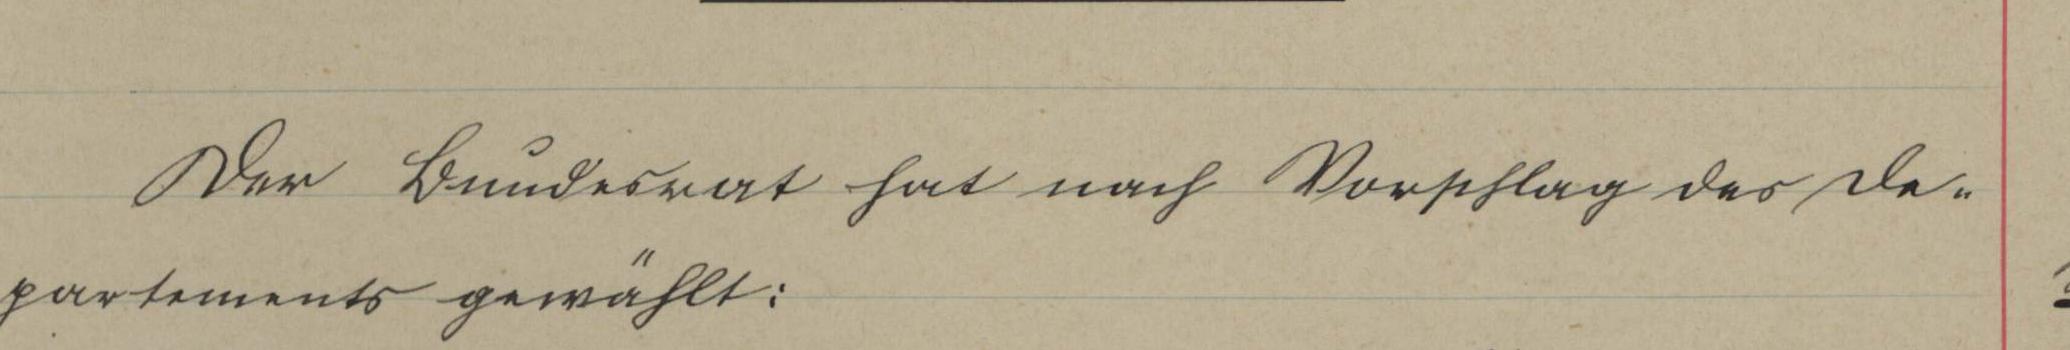 Der Bundesrat hat nach Vorschlag des De-
partements gewählt: